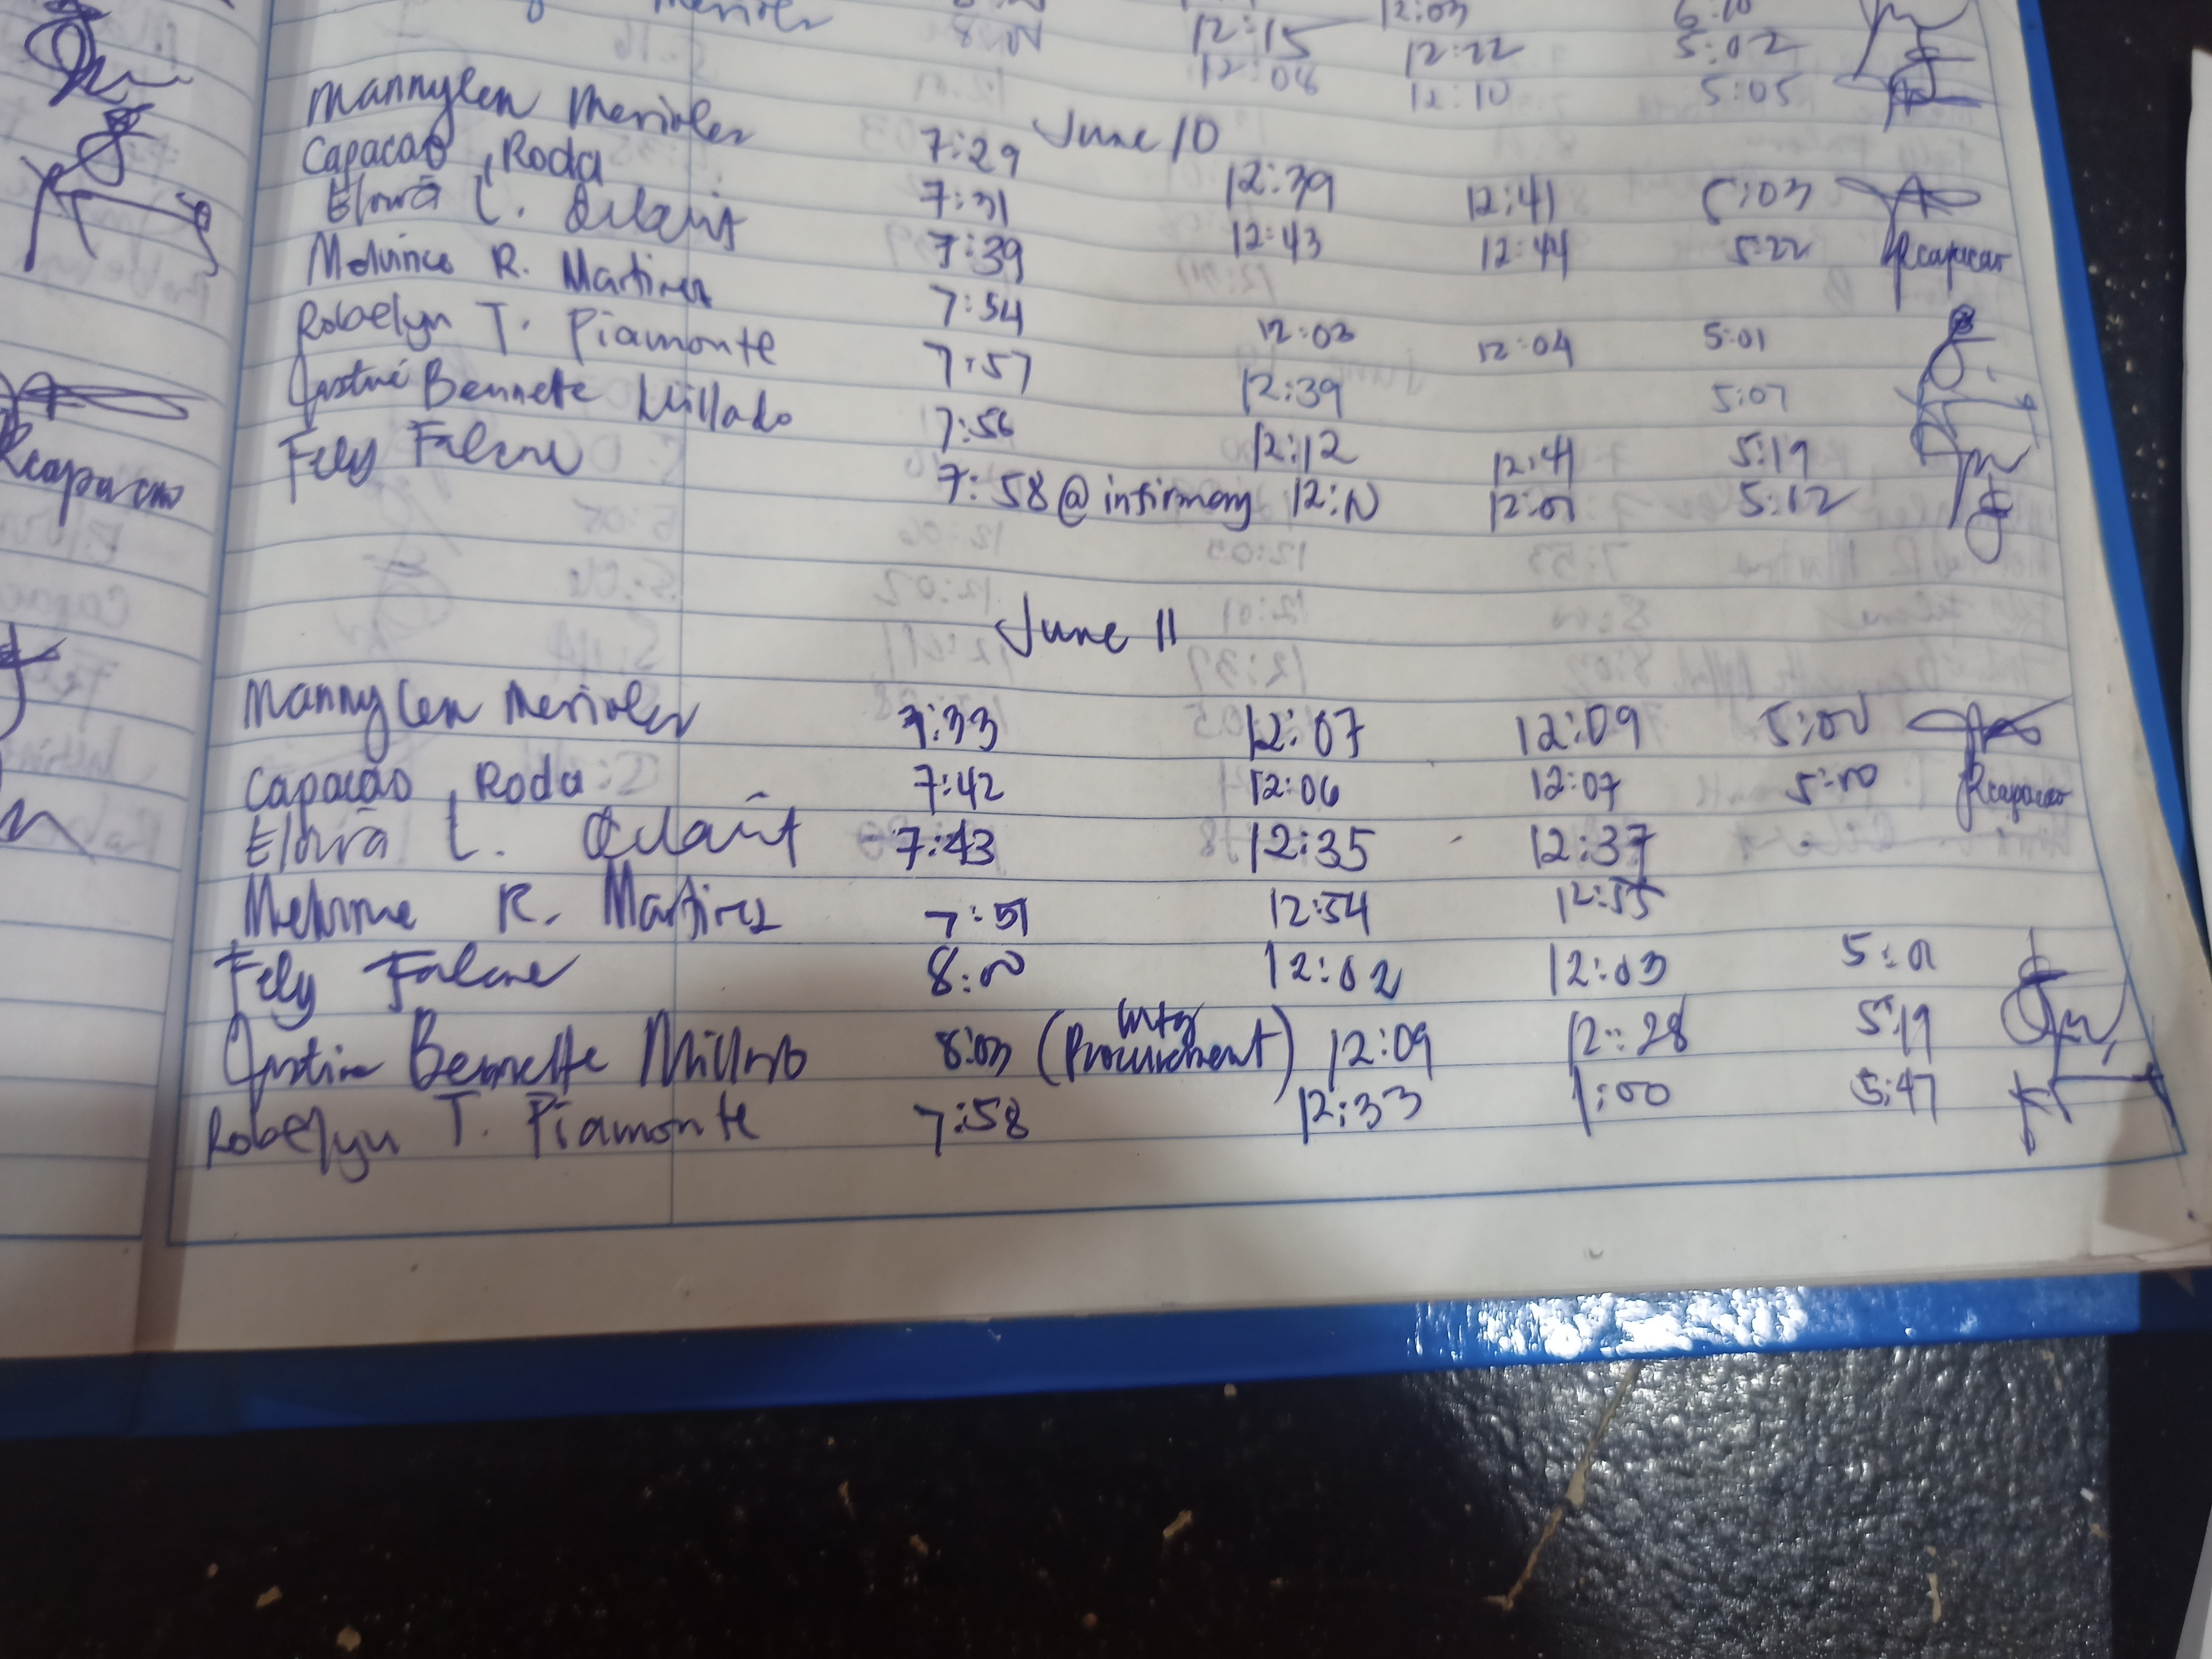 12:03 6:10
8:00 12:15 12:22 5:02
12:04 12:10 5:05
June 10
Mannylen Merioles 7:29 12:39 12:41 5:03
Capacao, Roda 7:31 12:43 12:44 5:22 Rcapacao
L. 7:39
R. Martinez 7:54 12:03 12:04 5:01
Robelyn T. Piamonte 7:57 12:39 5:07
Justine Bennette Millado 7:56 12:12 12:41 5:19
Fely Falcone 7:58 @ infirmary 12:N 12:01 5:12
Rcapacao
June 11
Mannylen Merioles 7:33 12:07 12:09 5:00
Capacao, Roda 7:42 12:06 12:07 5:00 Rcapacao
L. 7:43 12:35 12:37
R. Martinez 7:51 12:54 12:55
Fely Falcone 8:00 12:02 12:03 5:01
Justine Bennette Millado 8:03 (mtg Procurement) 12:09 12:28 5:19
Robelyn T. Piamonte 7:58 12:33 1:00 5:47